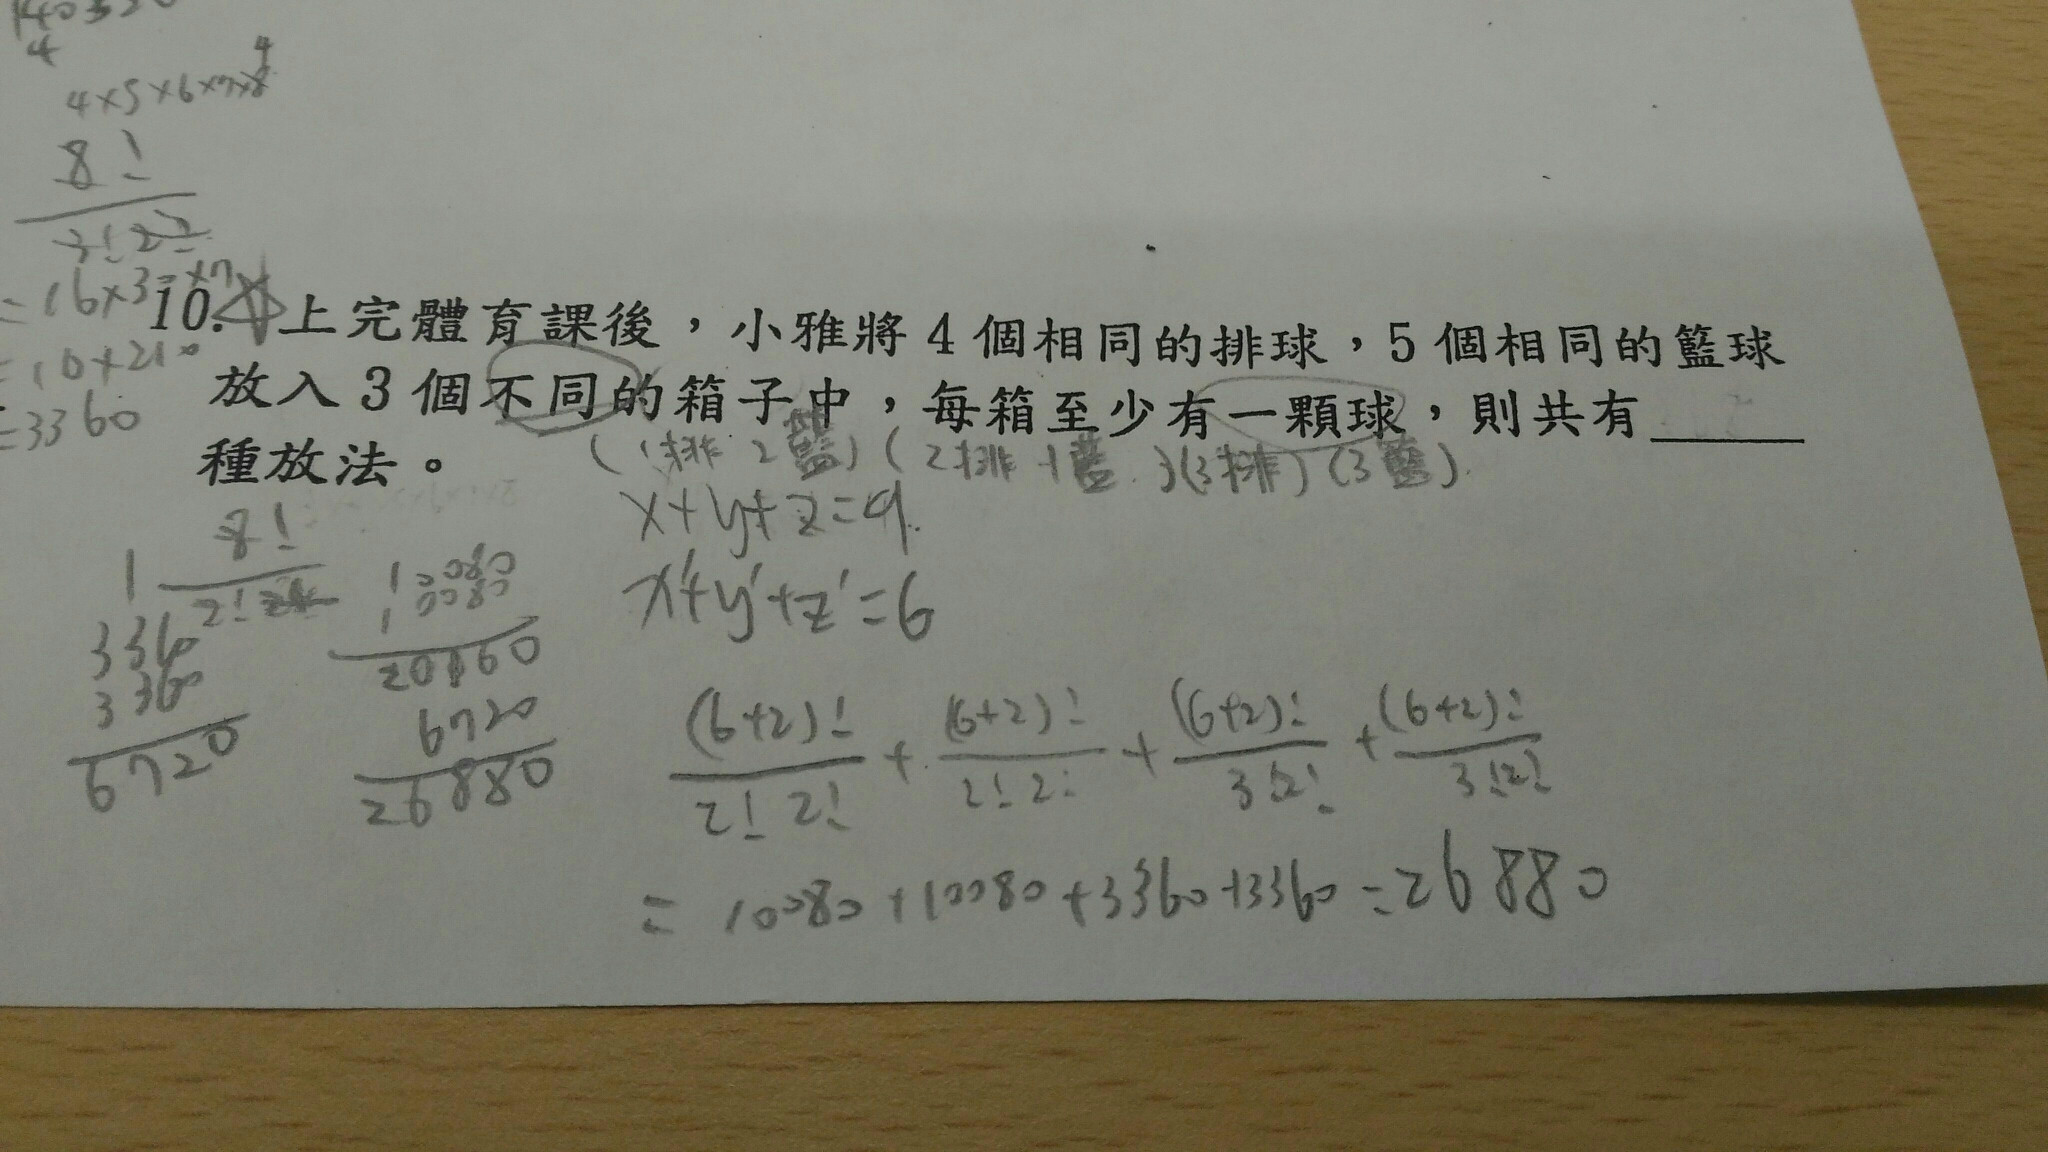 4
4
4×5×6×7×8
8!
3!2!
10. 上完體育課後，小雅將 4 個相同的排球，5 個相同的籃球
放入 3 個不同的箱子中，每箱至少有一顆球，則共有______
種放法。
(1排 2籃) (2排 1藍) (3排) (3籃)
=3360
x+y+z=9
x'+y'+z'=6
8!
2!
1
3360
3360
6720
10080
10080
20160
6720
26880
(6+2)!/2!2! + (6+2)!/2!2! + (6+2)!/3!2! + (6+2)!/3!2!
= 10080+10080+3360+3360=26880